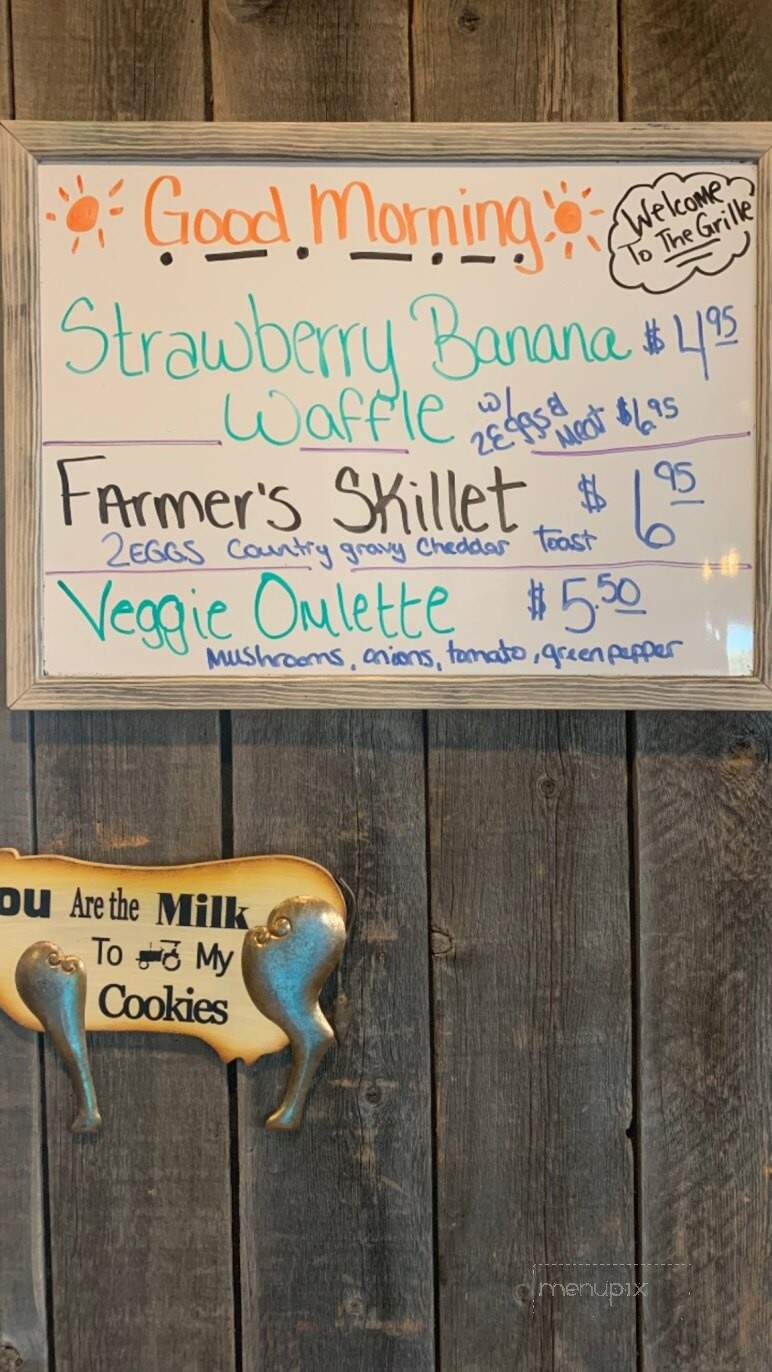 Good Morning
Welcome
To The Grille
Strawberry Banana $4.95
Waffle w/ 2 Eggs & Meat $6.95
Farmer's Skillet $6.95
2 EGGS Country gravy Cheddar Toast
Veggie Omlette $5.50
Mushrooms, onions, tomato, green pepper
ou Are the Milk
To My
Cookies
menupix